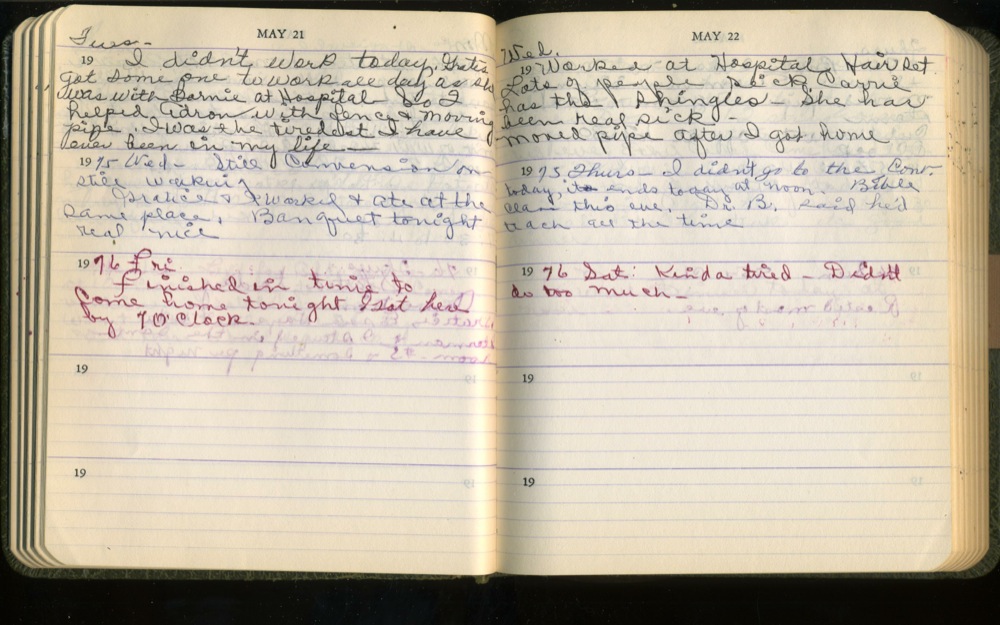 MAY 21
Tues-
19 I didn't work today, Greta
got some one to work all day as she
was with Bernie at Hospital So I
helped with fence & moving
pipe. I was the tiredest I have
ever been in my life -
1975 Wed- Still Convension on
still working
& I worked & ate at the
same place. Banquet tonight
real nice
19 76 Fri.
Finished in time to
come home tonight Got here
by 7 O'Clock.
19
19
MAY 22
Wed.
19 Worked at Hospital, Hair Set
Lots of people sick Carrie
has the Shingles - She has
been real sick -
moved pipe after I got home
1975 Thurs- I didn't go to the Conv.
today, ends today at noon. Bible
class this eve. Dr. B. said he'd
teach all the time
19 76 Sat: Kinda tried - Didn't
do too much-
19
19